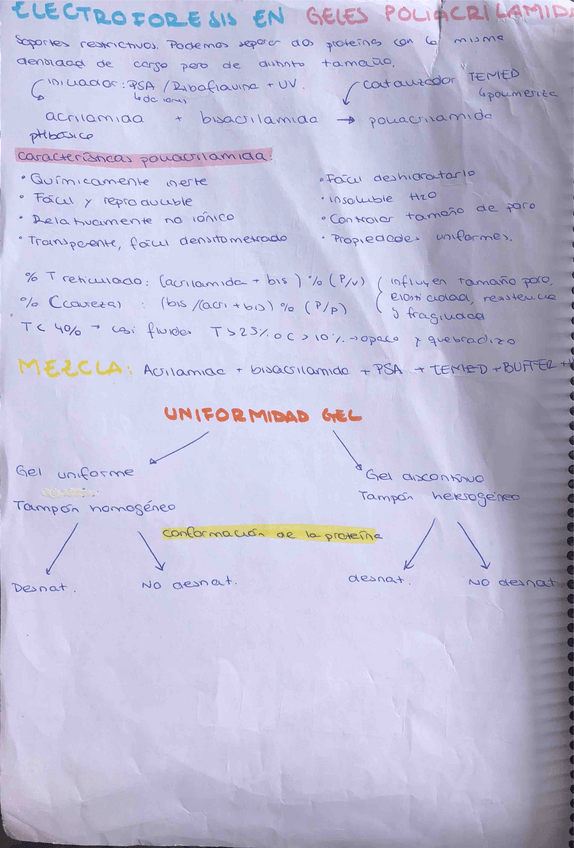 ELECTROFORESIS EN GELES POLIACRILAMIDA
Soportes restrictivos. Podemos separar dos proteínas con la misma
densidad de carga pero de distinto tamaño.
iniciador: PSA / Riboflavina + UV
catalizador TEMED
polimeriza
acrilamida + bisacrilamida → poliacrilamida
pH básico
Características poliacrilamida:
· Químicamente inerte
· Fácil y reproducible
· Relativamente no iónico
· Transparente, fácil densitometrado
· Fácil deshidratarlo
· Insoluble H2O
· Controlar tamaño de poro
· Propiedades uniformes.
% T reticulado: (acrilamida + bis) % (P/V)
% C (careza) : (bis/(acri + bis) % (P/P)
influyen tamaño poro,
elasticidad, resistencia
y fragilidad
T < 40% → casi fluidos T > 23% o C > 10% → opaco y quebradizo
MEZCLA: Acrilamida + bisacrilamida + PSA + TEMED + BUFFER +
UNIFORMIDAD GEL
Gel uniforme
Tampón homogéneo
Gel discontinuo
Tampón heterogéneo
conformación de la proteína
Desnat.
No desnat.
desnat.
No desnat